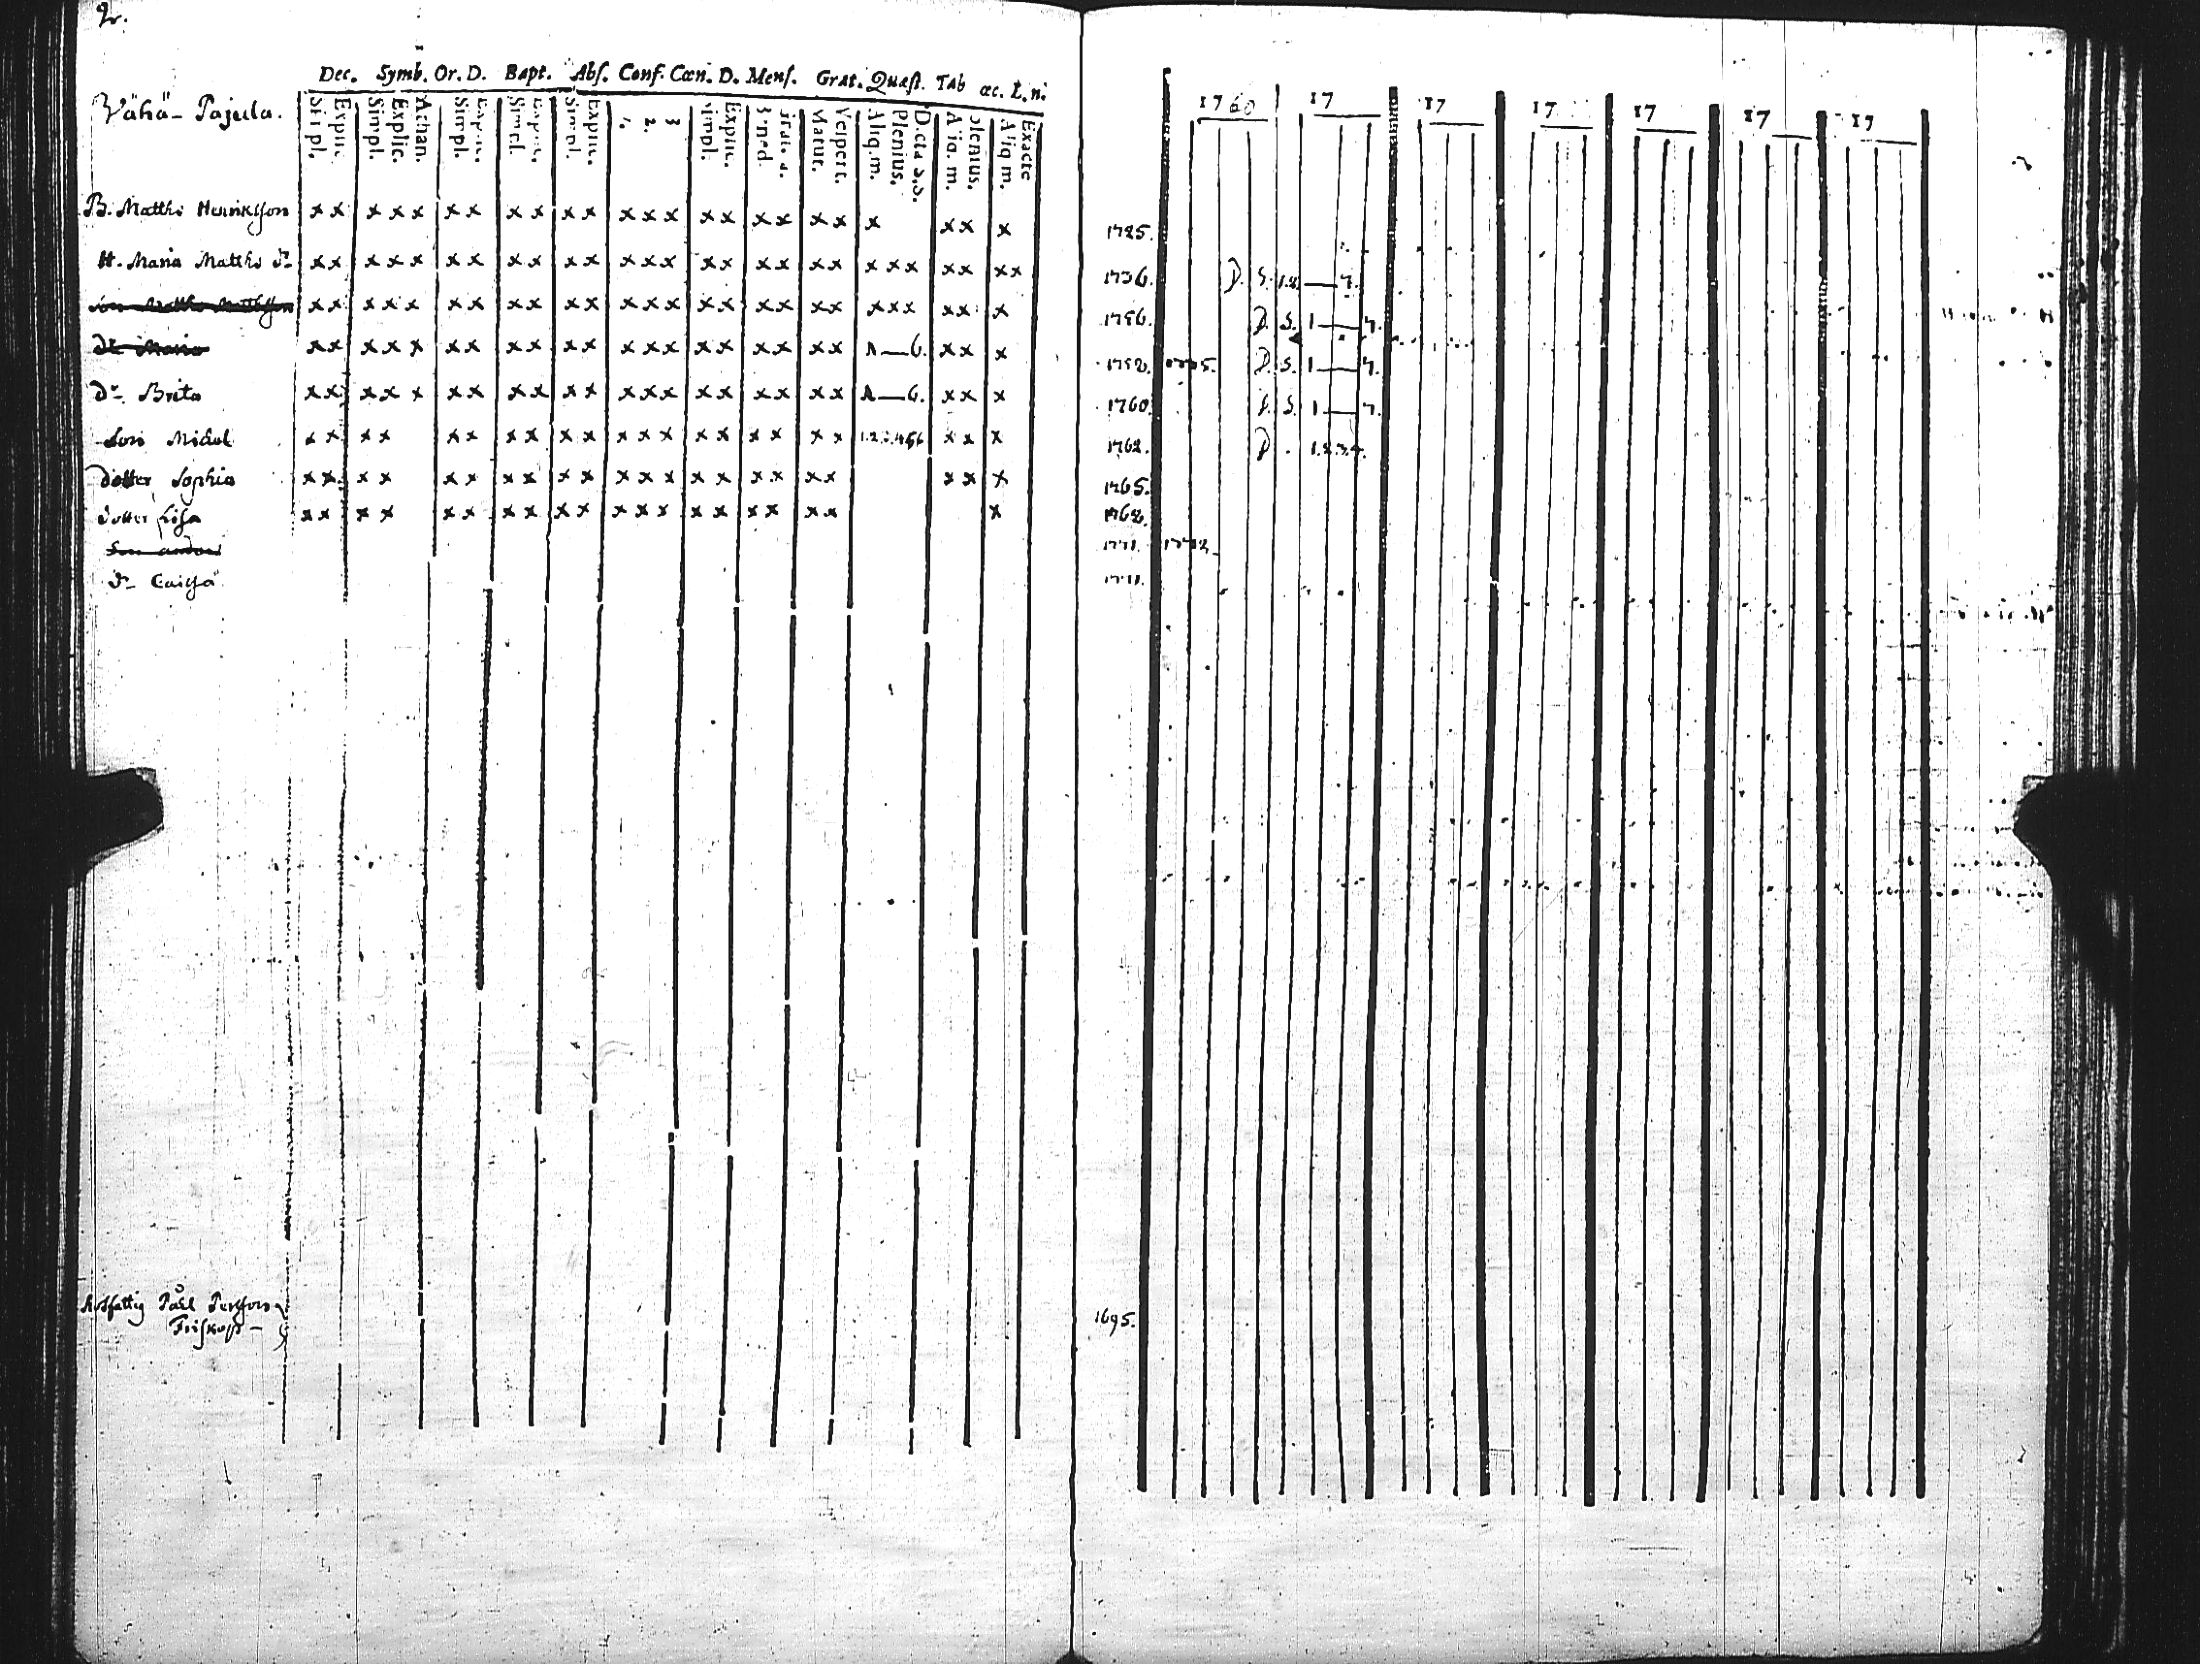 2.
Dec. Symb. Or. D. Bapt. Abs. Conf. Cœn. D. Mens. Grat. Quæst. Tab œc. L. n.
Vähä- Pajula.
Simpl. Explic. Simpl. Explic. Athan. Simpl. Explic. Simpl. Explic. Simpl. Explic. 1. 2. 3 Simpl. Explic. Matut. Vespert. Aliq. m. Plenius. Dicta S. S. Aliq. m. Plenius. Aliq m. Exacte
1760 17 17 17 17 17 17
B. Matths Henriksson x x x x x x x x x x x x x x x x x x x x x x x x 1725.
H. Maria Matths dr x x x x x x x x x x x x x x x x x x x x x x x x x x x 1736. D. S. 1.2. — 7.
son Matths Matthsson x x x x x x x x x x x x x x x x x x x x x x x x x x 1756. D. S. 1 — 7.
dr Maria x x x x x x x x x x x x x x x x x x x x A—6. x x x 1758. D. S. 1 — 7.
dr. Brita x x x x x x x x x x x x x x x x x x x x A—6. x x x 1760. D. S. 1 — 7.
Son Michel x x x x x x x x x x x x x x x x x x x 1.2.3.4.5.6 x x x 1762. D. 1.2.3.4.
dotter Sophia x x x x x x x x x x x x x x x x x x x x x x 1765.
dotter Lisa x x x x x x x x x x x x x x x x x x x x 1768.
Son 1771. 1772.
dr Caisa 1771.
Rotfattig Påhl Persson
1695.